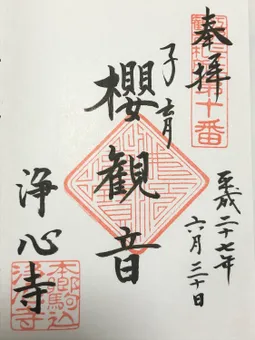 奉拝
平成二十七年
六月三十日
子育
櫻観音
浄心寺
本郷駒込
浄心寺